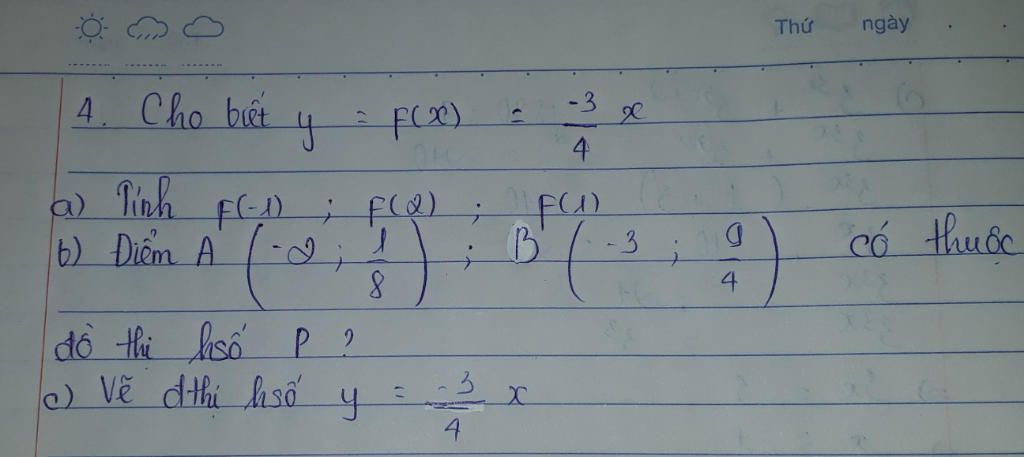 Thứ ngày
4. Cho biết y = F(x) = \frac{-3}{4} x
a) Tính F(-1) ; F(2) ; F(1)
b) Điểm A (-2 ; \frac{1}{8}) ; B (-3 ; \frac{9}{4}) có thuộc
đồ thị hsố P ?
c) Vẽ đthị hsố y = \frac{-3}{4} x